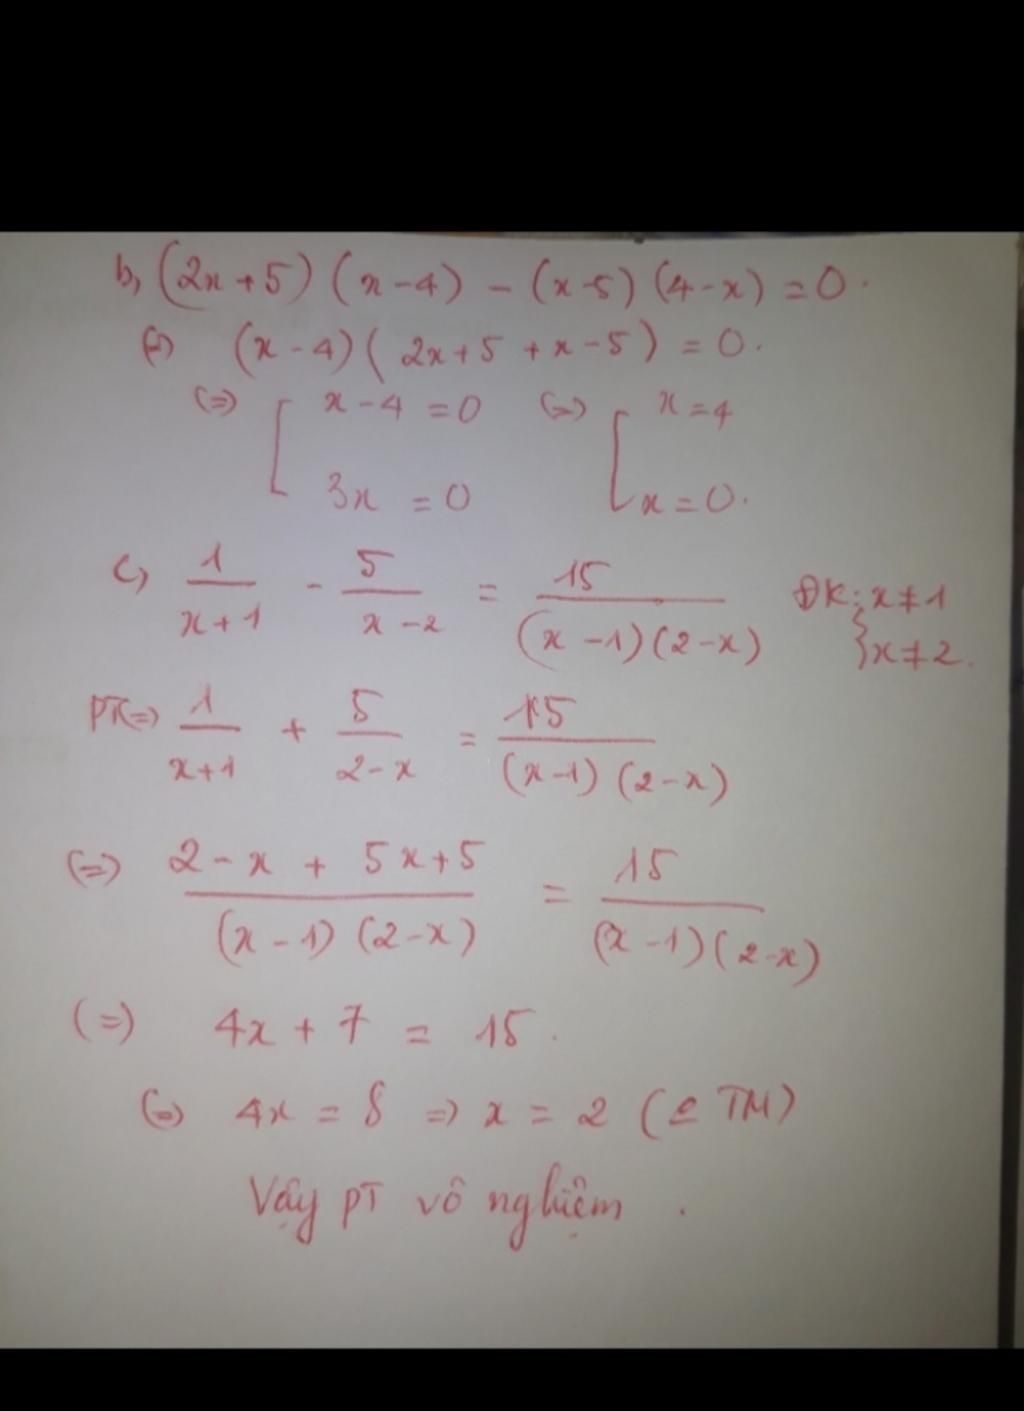 b, (2x+5)(x-4) - (x-5)(4-x) = 0.
(=) (x-4)(2x+5+x-5) = 0.
(=) [ x-4 = 0 (=) [ x = 4
3x = 0 x = 0.
c, 1/(x+1) - 5/(x-2) = 15/((x-1)(2-x)) ĐK: { x ≠ 1
x ≠ 2.
PT(=) 1/(x+1) + 5/(2-x) = 15/((x-1)(2-x))
(=) (2-x + 5x+5)/((x-1)(2-x)) = 15/((x-1)(2-x))
(=) 4x + 7 = 15.
(=) 4x = 8 => x = 2 ( TM)
Vậy PT vô nghiệm.